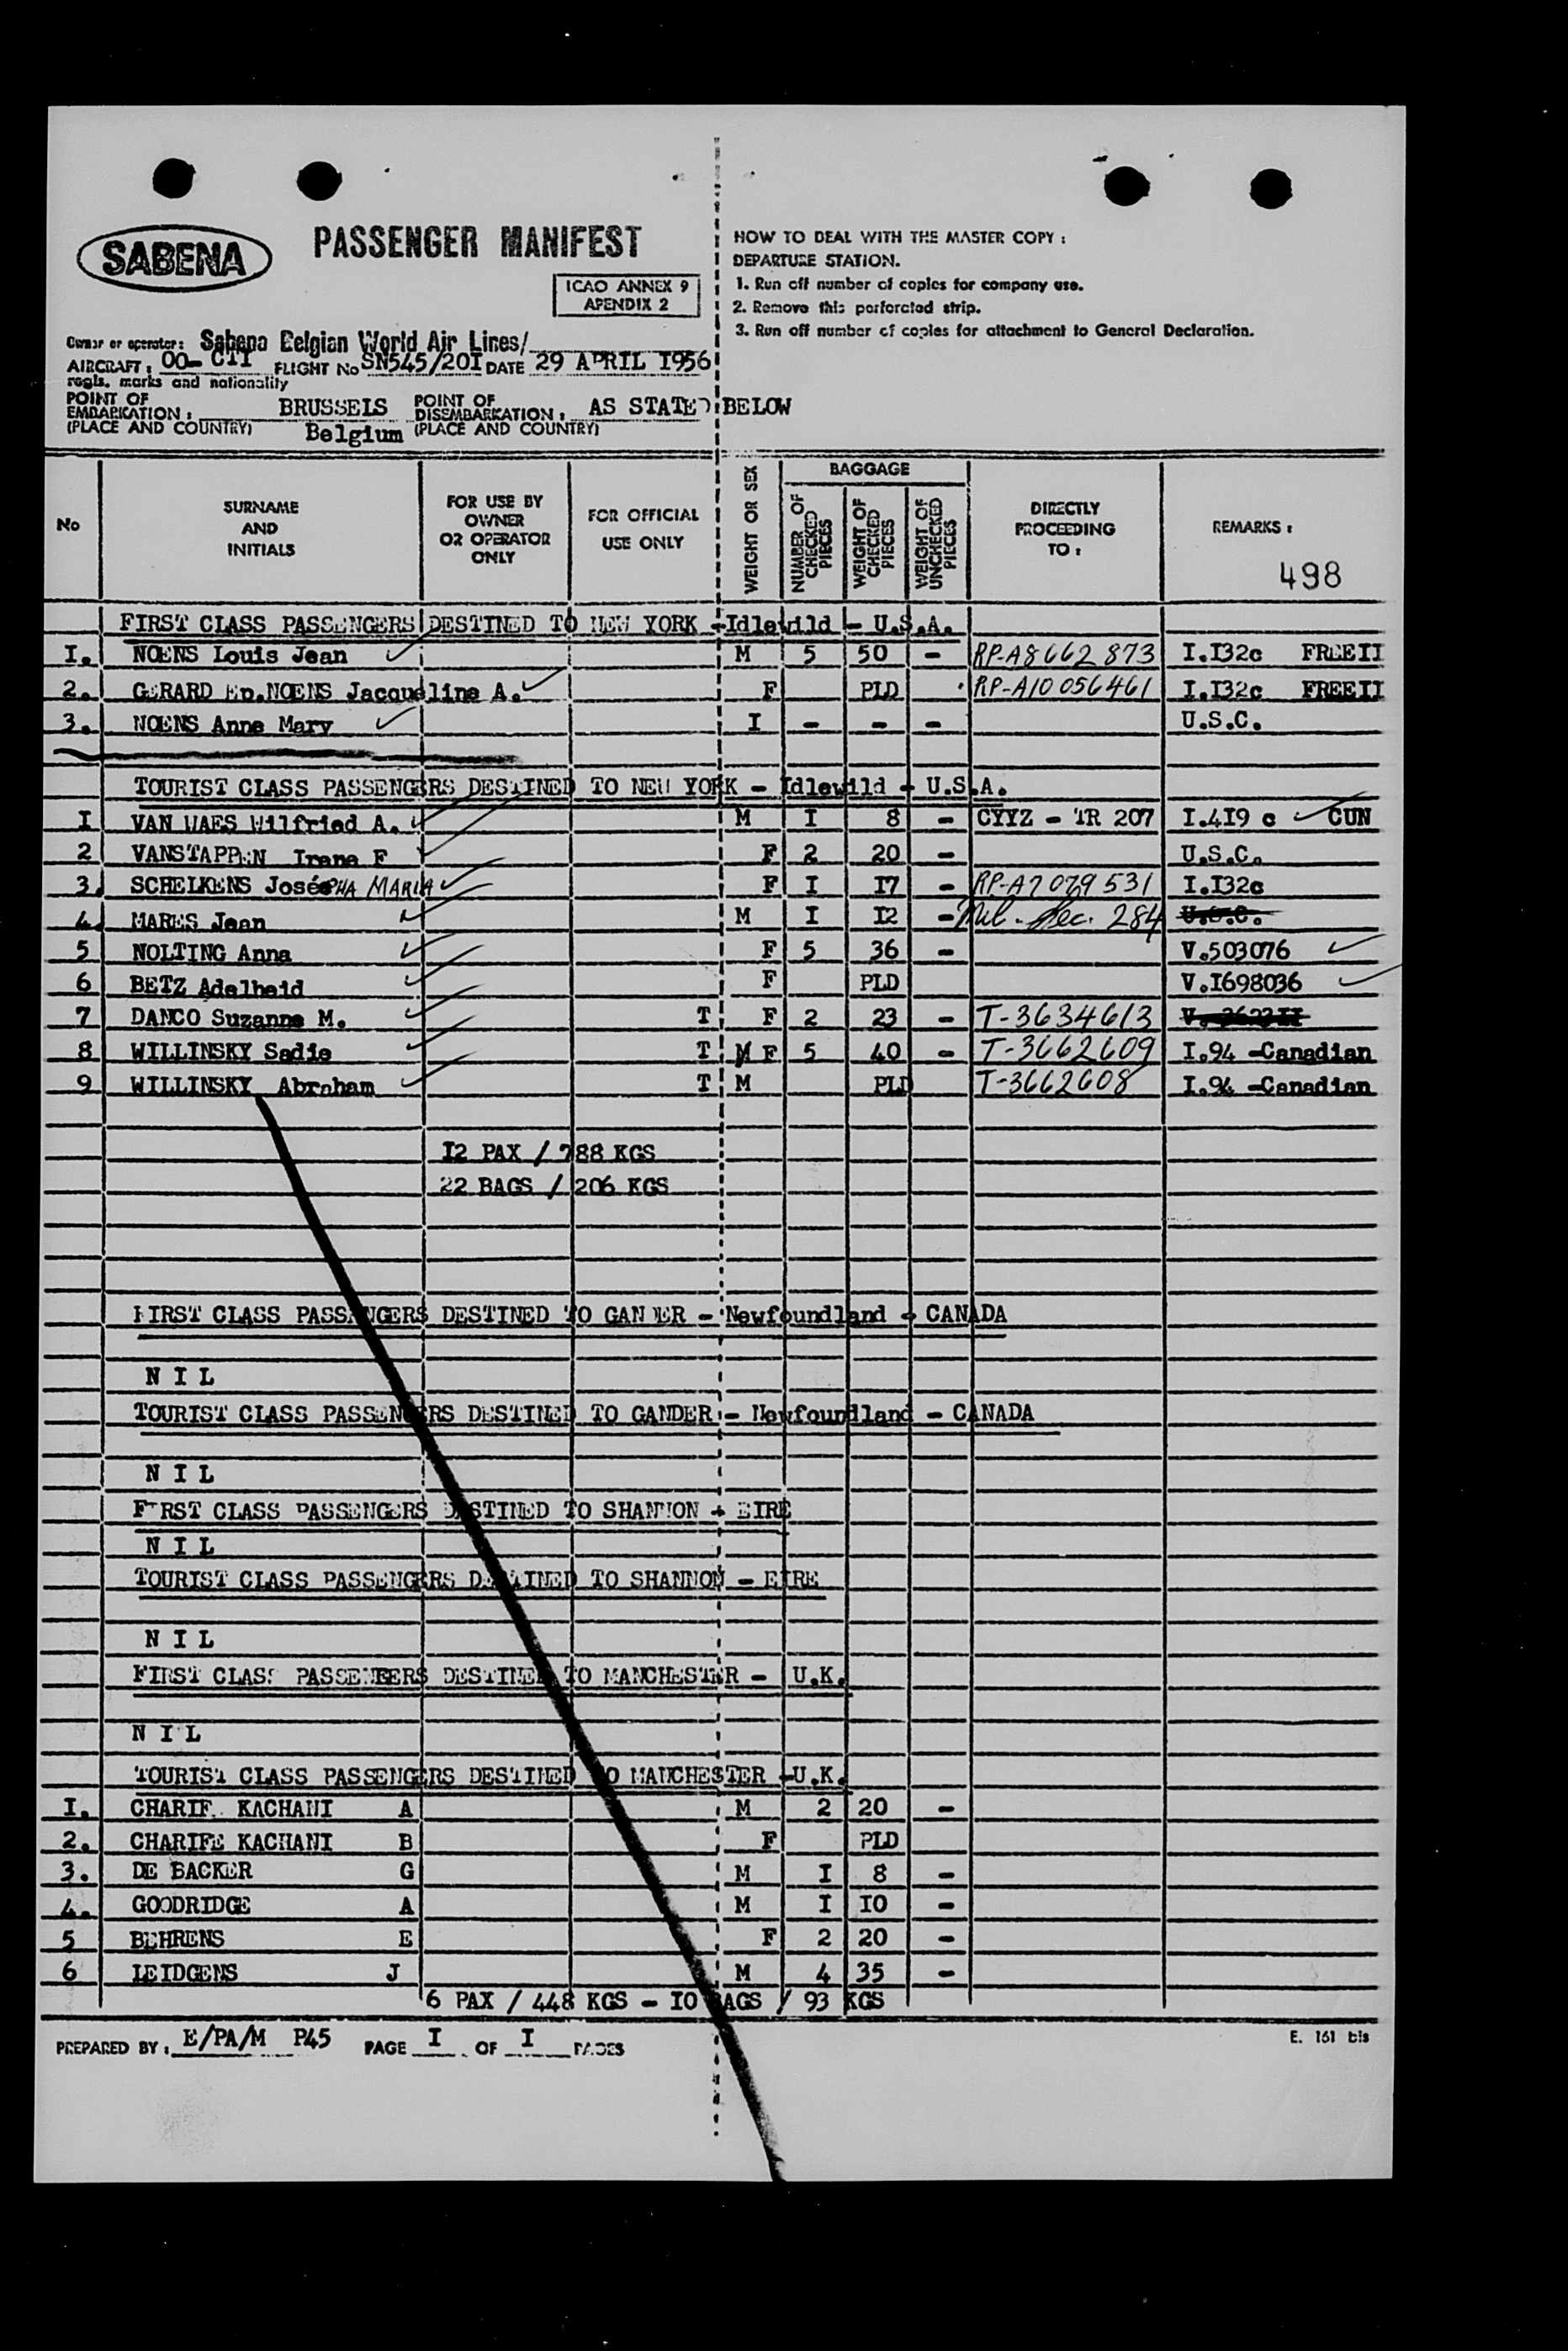 SABENA
PASSENGER MANIFEST
ICAO ANNEX 9
APENDIX 2
HOW TO DEAL WITH THE MASTER COPY :
DEPARTURE STATION.
1. Run off number of copies for company use.
2. Remove this perforated strip.
3. Run off number of copies for attachment to General Declaration.
Owner or operator: Sabena Belgian World Air Lines/
AIRCRAFT : OO- CTI FLIGHT No SN545/20I DATE 29 APRIL I956
regis. marks and nationality
POINT OF EMBARKATION : BRUSSELS POINT OF DISEMBARKATION : AS STATED BELOW
(PLACE AND COUNTRY) Belgium (PLACE AND COUNTRY)
No
SURNAME AND INITIALS
FOR USE BY OWNER OR OPERATOR ONLY
FOR OFFICIAL USE ONLY
WEIGHT OR SEX
BAGGAGE
NUMBER OF CHECKED PIECES
WEIGHT OF CHECKED PIECES
WEIGHT OF UNCHECKED PIECES
DIRECTLY PROCEEDING TO :
REMARKS :
498
FIRST CLASS PASSENGERS DESTINED TO NEW YORK -Idlewild - U.S.A.
I. NOENS Louis Jean M 5 50 - RP-A8662873 I.I32c FREEII
2. GERARD Ep.NOENS Jacqueline A. F PLD RP-A10 056461 I.I32c FREEII
3. NOENS Anne Mary I - - - U.S.C.
TOURIST CLASS PASSENGERS DESTINED TO NEW YORK - Idlewild - U.S.A.
I VAN WAES Wilfried A. M I 8 - CYYZ - TR 207 I.4I9 c CUN
2 VANSTAPPEN Irene F F 2 20 - U.S.C.
3. SCHELKENS JoséPHA MARIA F I I7 - RP-A7079531 I.I32c
4. MARES Jean M I I2 - Mil. Sec. 284 U.S.C.
5 NOLTING Anna F 5 36 - V.503076
6 BETZ Adelheid F PLD V.I698036
7 DANCO Suzanne M. T F 2 23 - T-3634613
8 WILLINSKY Sadie T M F 5 40 - T-3662609 I.94 -Canadian
9 WILLINSKY Abraham T M PLD T-3662608 I.94 -Canadian
I2 PAX / 788 KGS
22 BAGS / 206 KGS
FIRST CLASS PASSENGERS DESTINED TO GANDER - Newfoundland - CANADA
N I L
TOURIST CLASS PASSENGERS DESTINED TO GANDER - Newfoundland - CANADA
N I L
FIRST CLASS PASSENGERS DESTINED TO SHANNON - EIRE
N I L
TOURIST CLASS PASSENGERS DESTINED TO SHANNON - EIRE
N I L
FIRST CLASS PASSENEERS DESTINED TO MANCHESTER - U.K.
N I L
TOURIST CLASS PASSENGERS DESTINED TO MANCHESTER -U.K.
I. CHARIF KACHANI A M 2 20 -
2. CHARIFE KACHANI B F PLD
3. DE BACKER G M I 8 -
4. GOODRIDGE A M I I0 -
5 BEHRENS E F 2 20 -
6 LEIDGENS J M 4 35 -
6 PAX / 448 KGS - I0 BAGS / 93 KGS
PREPARED BY : E/PA/M P45 PAGE I OF I PAGES
E. 161 bis